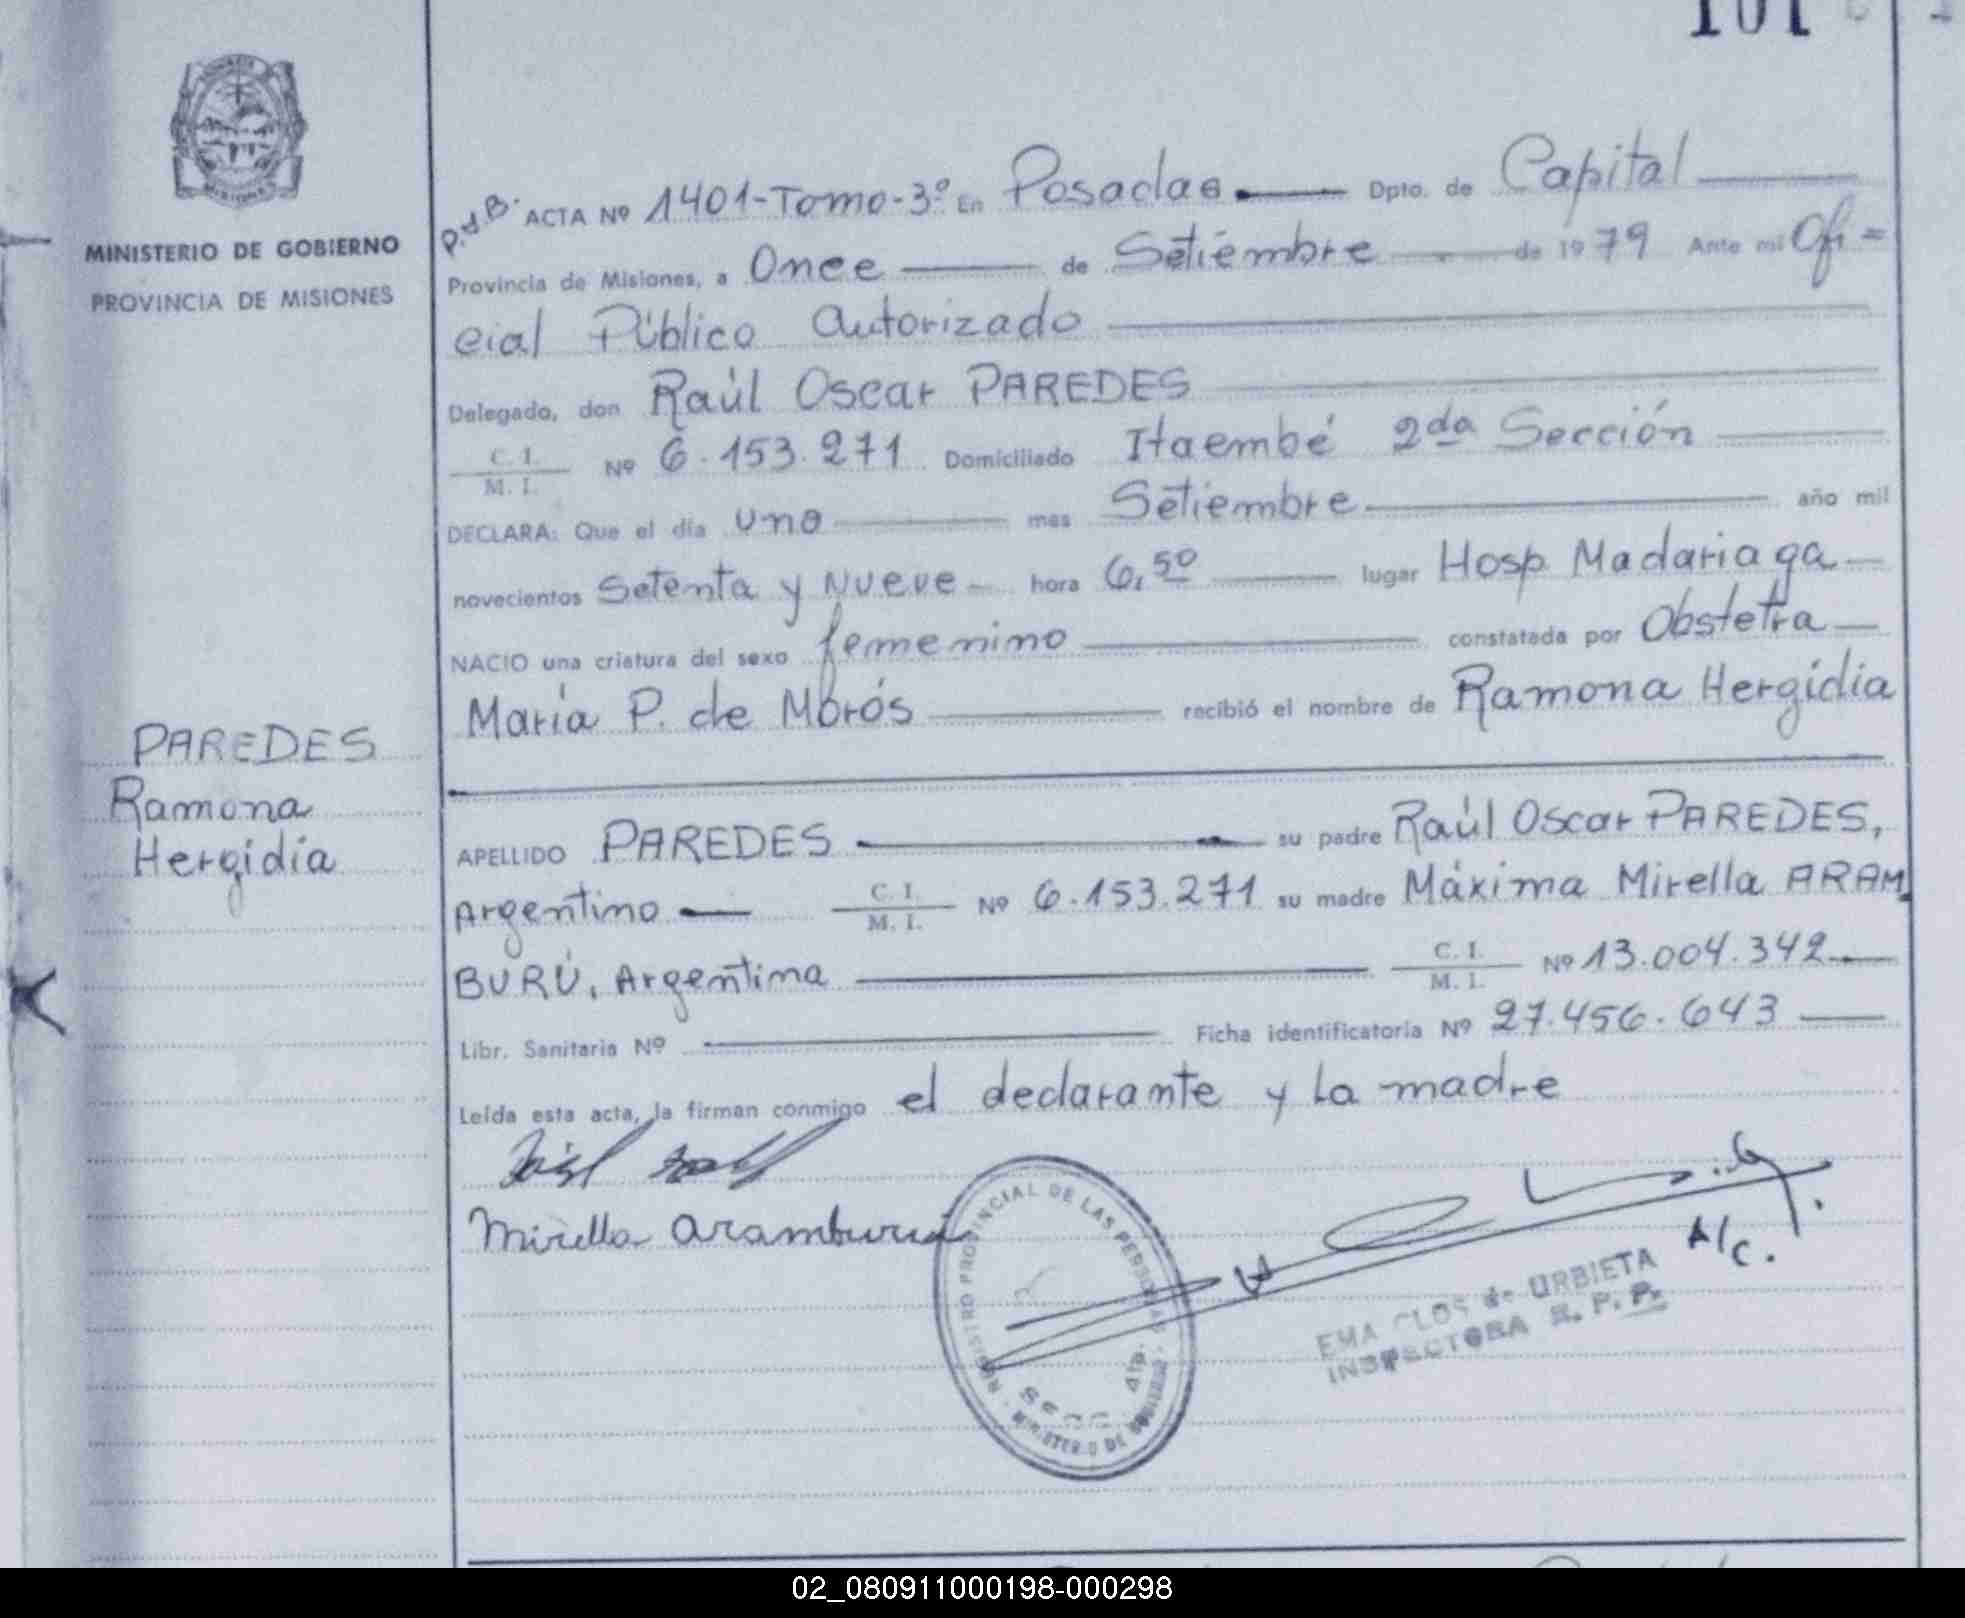 101
MINISTERIO DE GOBIERNO
PROVINCIA DE MISIONES
P.d.B. ACTA Nº 1401-Tomo-3º En Posadas Dpto. de Capital
Provincia de Misiones, a Once de Setiembre de 1979 Ante mi Ofi=
cial Público Autorizado
Delegado, don Raúl Oscar PAREDES
C. I.
M. I. Nº 6.153.271 Domiciliado Itaembé 2da Sección
DECLARA: Que el día uno mes Setiembre año mil
novecientos Setenta y Nueve hora 6,50 lugar Hosp. Madariaga
NACIO una criatura del sexo femenino constatada por Obstetra
María P. de Morós recibió el nombre de Ramona Hergidia
PAREDES
Ramona
Hergidia
APELLIDO PAREDES su padre Raúl Oscar PAREDES,
Argentino C. I.
M. I. Nº 6.153.271 su madre Máxima Mirella ARAM_
BURÚ, Argentina C. I.
M. I. Nº 13.004.342
Libr. Sanitaria Nº Ficha identificatoria Nº 27.456.643
Leída esta acta, la firman conmigo el declarante y La madre
Mirella Aramburú
REGISTRO PROVINCIAL DE LAS PERSONAS
MINISTERIO DE GOBIERNO
A/c.
EMA CLOS de URBIETA
INSPECTORA R. P. P.
02_080911000198-000298